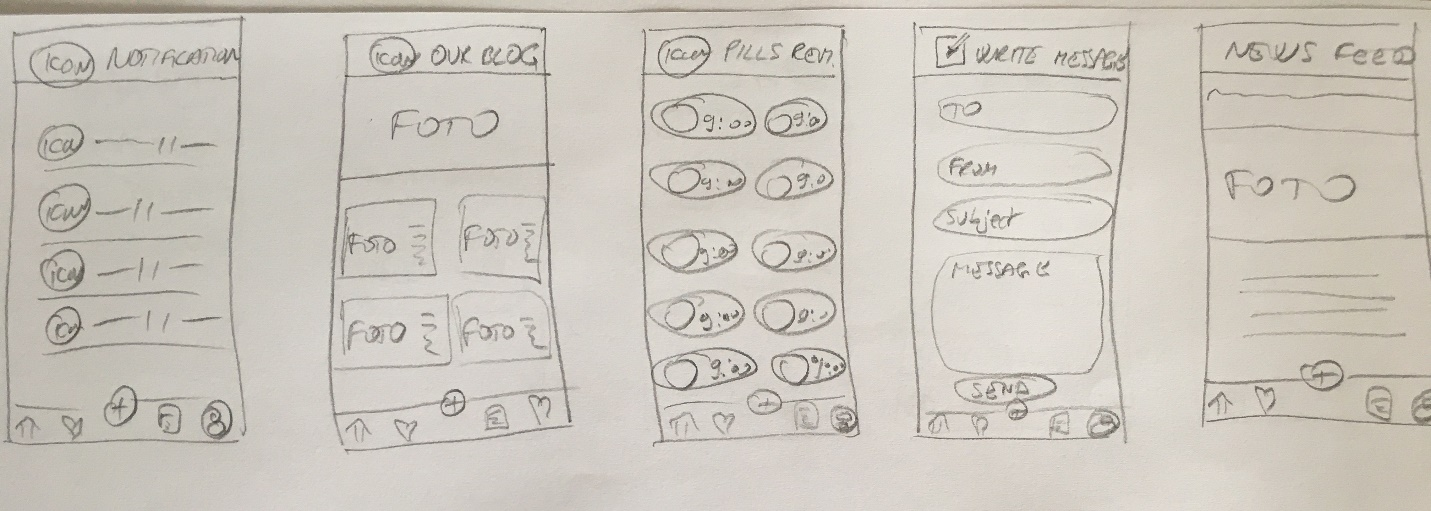 ICON NOTIFICATION
icon
icon
icon
icon
ICON OUR BLOG
FOTO
FOTO FOTO
FOTO FOTO
ICON PILLS REM.
9:00 9:0
9:00 9:0
9:00
9:00
9:00 9:00
WRITE MESSAGE
TO
From
Subject
MESSAGE
SEND
NEWS FEED
FOTO